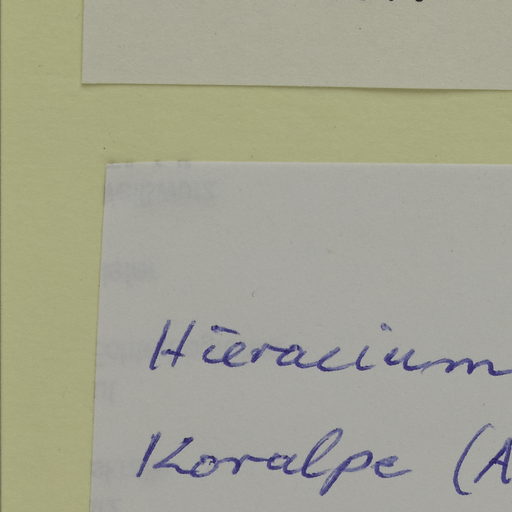 Hieracium
Koralpe (A